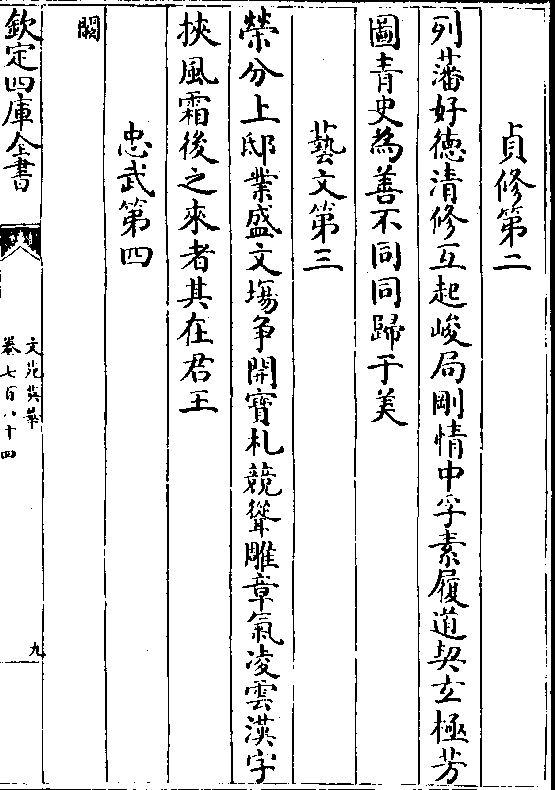 貞修第二
列藩好德清修互起峻局剛情中孚素履道契玄極芳
圖青史為善不同同歸于美
藝文第三
榮分上邸業盛文場爭開寶札競聳雕章氣凌雲漢字
挾風霜後之來者其在君王
忠武第四
闕
欽定四庫全書
文苑英華
卷七百八十四
九